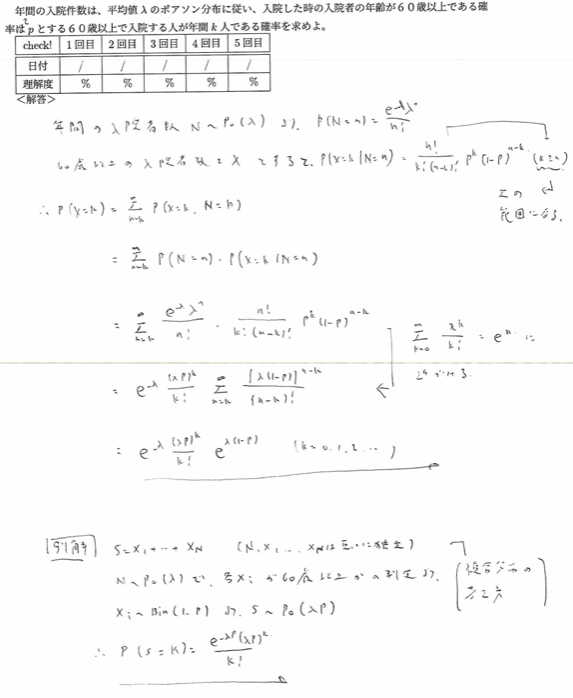 年間の入院件数は、平均値λのポアソン分布に従い、入院した時の入院者の年齢が60歳以上である確
率はpとする60歳以上で入院する人が年間k人である確率を求めよ。
check! 1回目 2回目 3回目 4回目 5回目
日付 / / / / /
理解度 % % % % %
<解答>
年間の入院者数 N ~ Po(λ) より、 P(N=n) = e^{-λ}λ^n / n!
60歳以上の入院者数を X とすると、P(X=k|N=n) = n!/(k!(n-k)!) p^k (1-p)^{n-k} (k≤n)
Σの
範囲になる。
∴ P(X=k) = Σ_{n=k}^∞ P(X=k, N=n)
= Σ_{n=k}^∞ P(N=n)・P(X=k|N=n)
= Σ_{n=k}^∞ e^{-λ}λ^n / n! ・ n!/(k!(n-k)!) p^k (1-p)^{n-k}
Σ_{k=0}^∞ x^k/k! = e^x に
= e^{-λ} (λp)^k/k! Σ_{n=k}^∞ [λ(1-p)]^{n-k} / (n-k)!
= e^{-λ} (λp)^k/k! e^{λ(1-p)} (k=0,1,2,…)
別解 S=X₁+…+X_N (N, X₁, …, X_Nは互いに独立)
N~Po(λ) で、各X_i が60歳以上かの判定より、
X_i ~ Bin(1, p) より、S ~ Po(λp)
(複合分布の
考え方)
∴ P(S=k) = e^{-λp}(λp)^k / k!